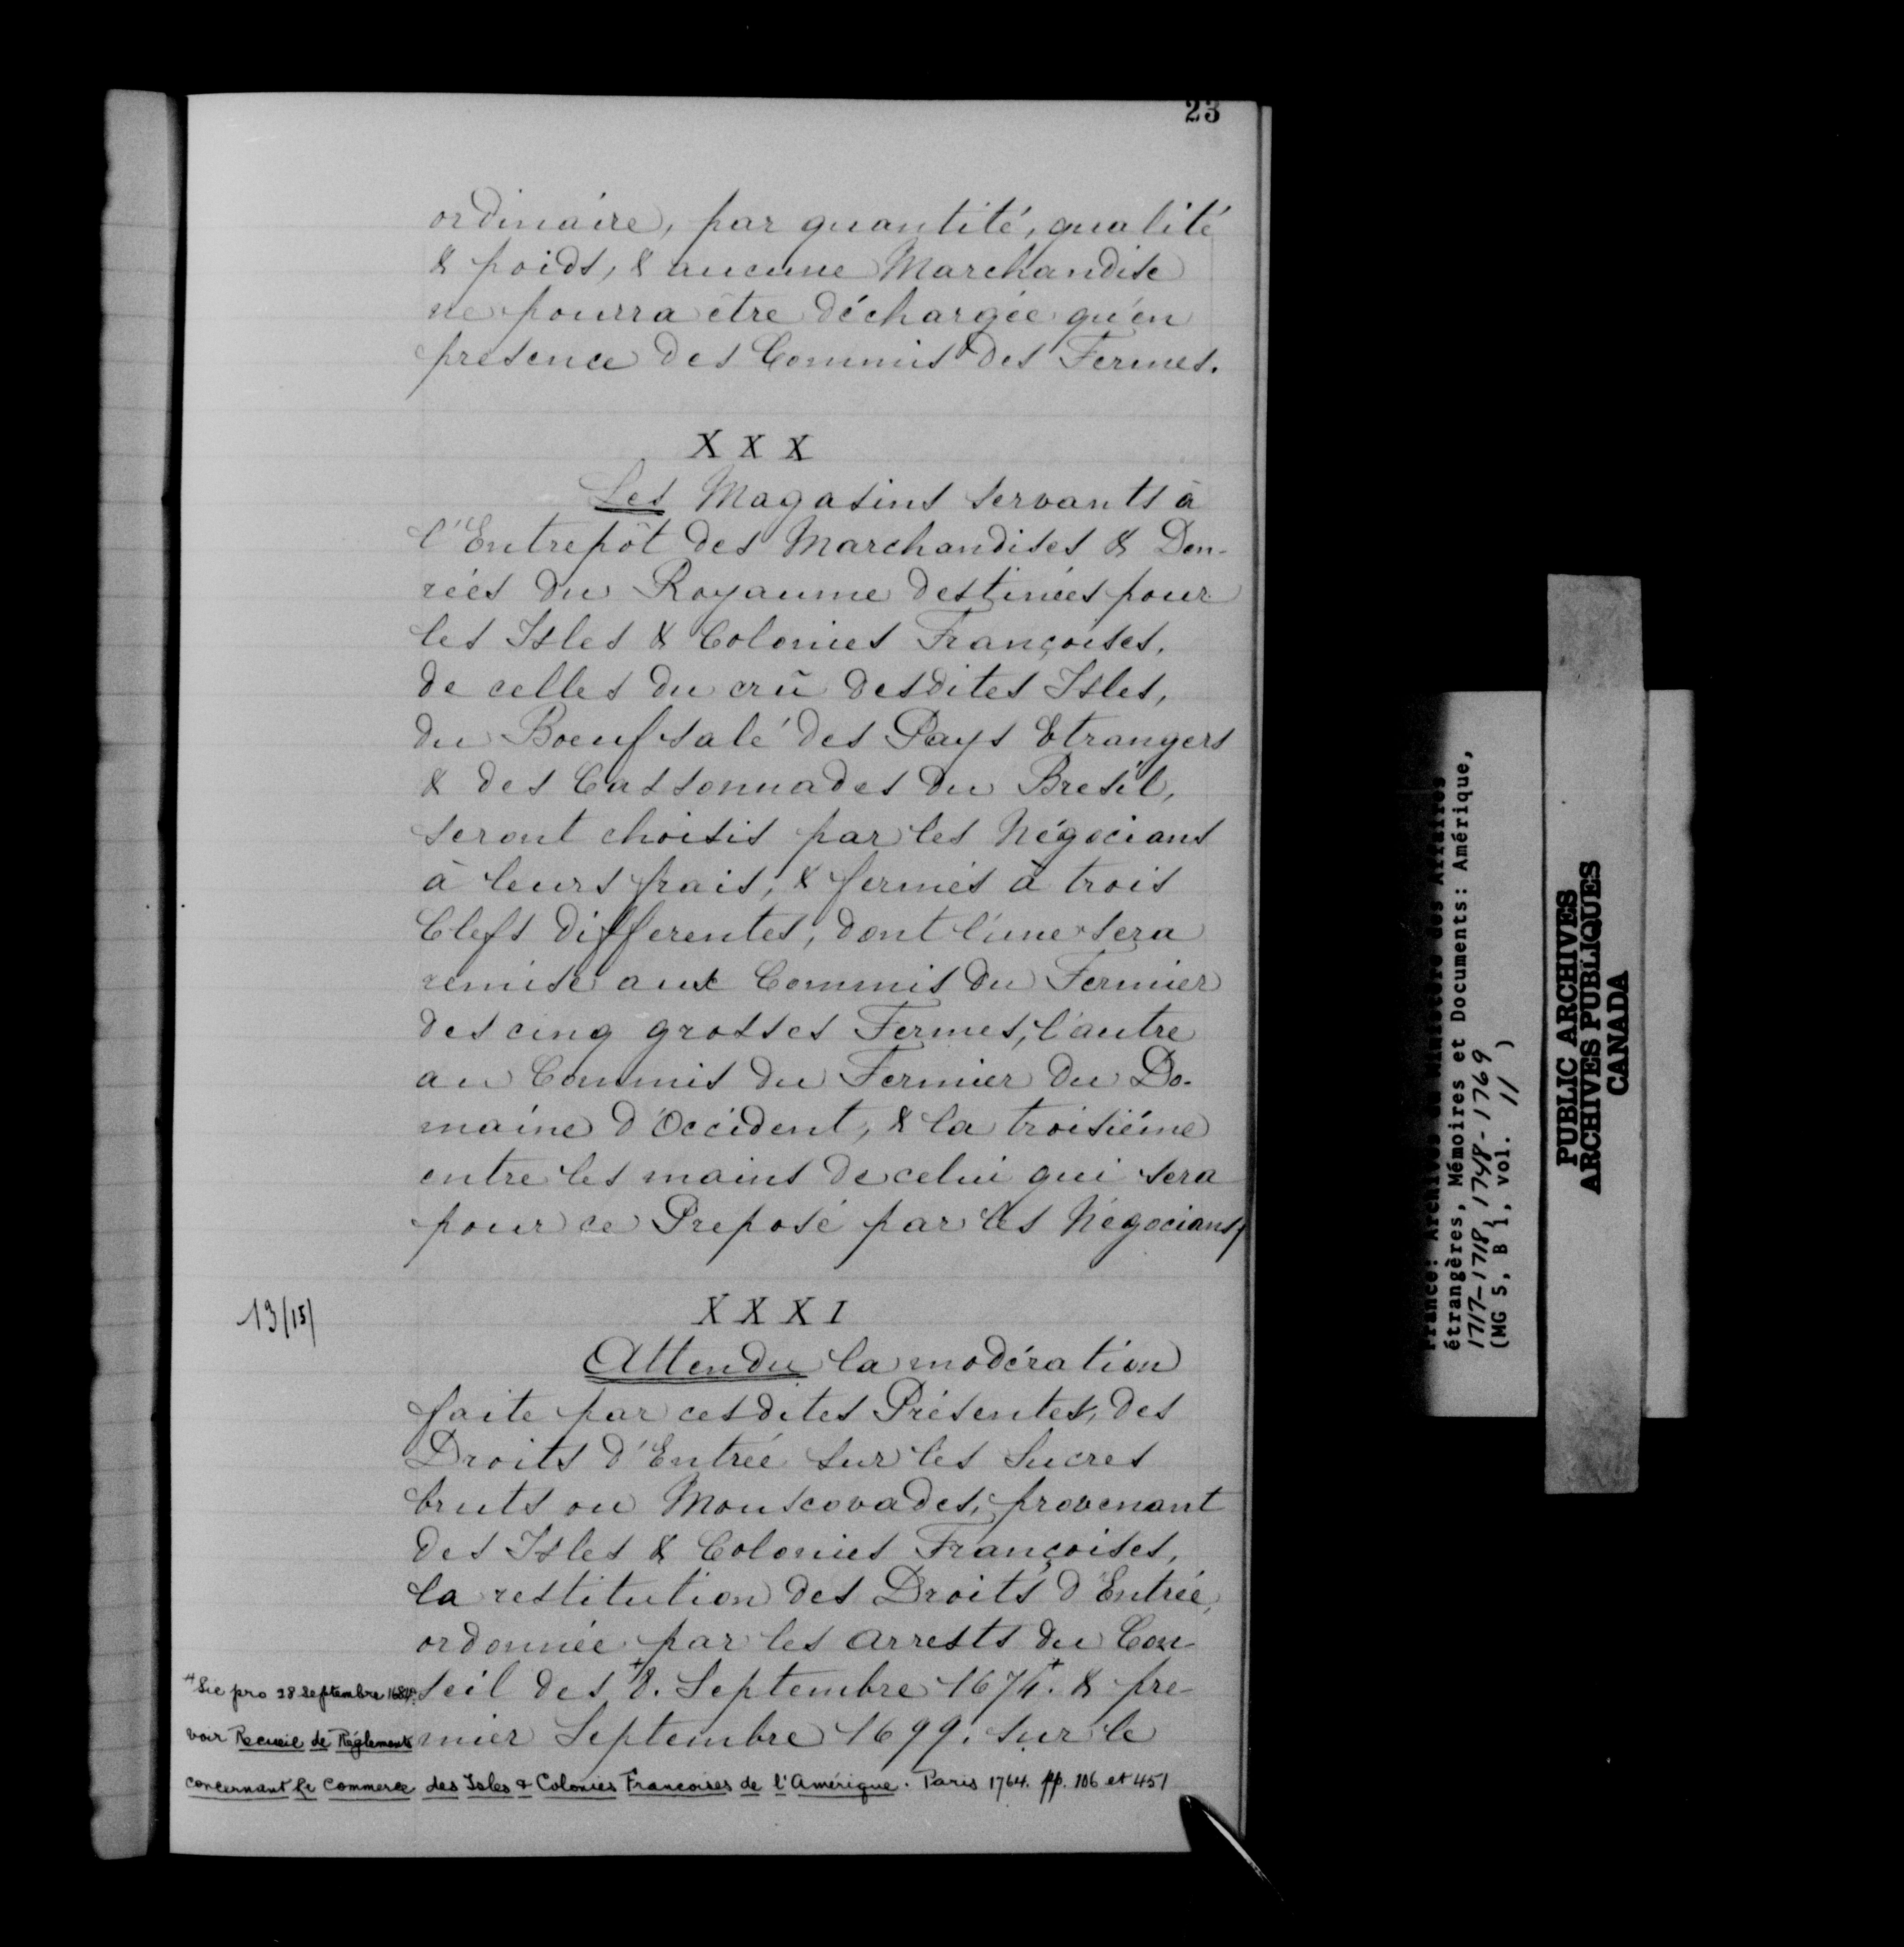 23
ordinaire, par quantité, qualité
& poids, & aucune Marchandise
ne pourra être déchargée qu'en
presence des Commis des Fermes.
XXX
Les Magasins servants à
l'Entrepôt des Marchandises & Den-
rées du Royaume destinées pour
les Isles & Colonies Françoises,
de celles du crû desdites Isles,
du Boeuf salé des Pays Etrangers
& des Cassonnades du Bresil,
seront choisis par les Négocians
à leurs frais, & fermés à trois
Clefs differentes, dont l'une sera
remise aux Commis du Fermier
des cinq grosses Fermes, l'autre
au Commis du Fermier du Do-
maine d'Occident, & la troisiéme
entre les mains de celui qui sera
pour ce Preposé par les Négocians,
13/15/
XXXI
Attendu la modération
faite par cesdites Présentes, des
Droits d'Entrée sur les Sucres
bruts ou Mouscovades, provenant
des Isles & Colonies Françoises,
la restitution des Droits d'Entrée,
ordonnée par les arrests du Con-
seil des + 8. Septembre 1674.+ & pre-
mier Septembre 1699. sur le
+ Sic pro 28 Septembre 1684.
voir Recueil de Réglements
concernant le Commerce des Isles & Colonies Francoises de l'Amérique. Paris 1764. pp. 106 et 451
France: Archives du Ministère des Affaires
étrangères, Mémoires et Documents: Amérique,
1717-1718, 1748-1769
(MG 5, B 1, vol. 11 )
PUBLIC ARCHIVES
ARCHIVES PUBLIQUES
CANADA